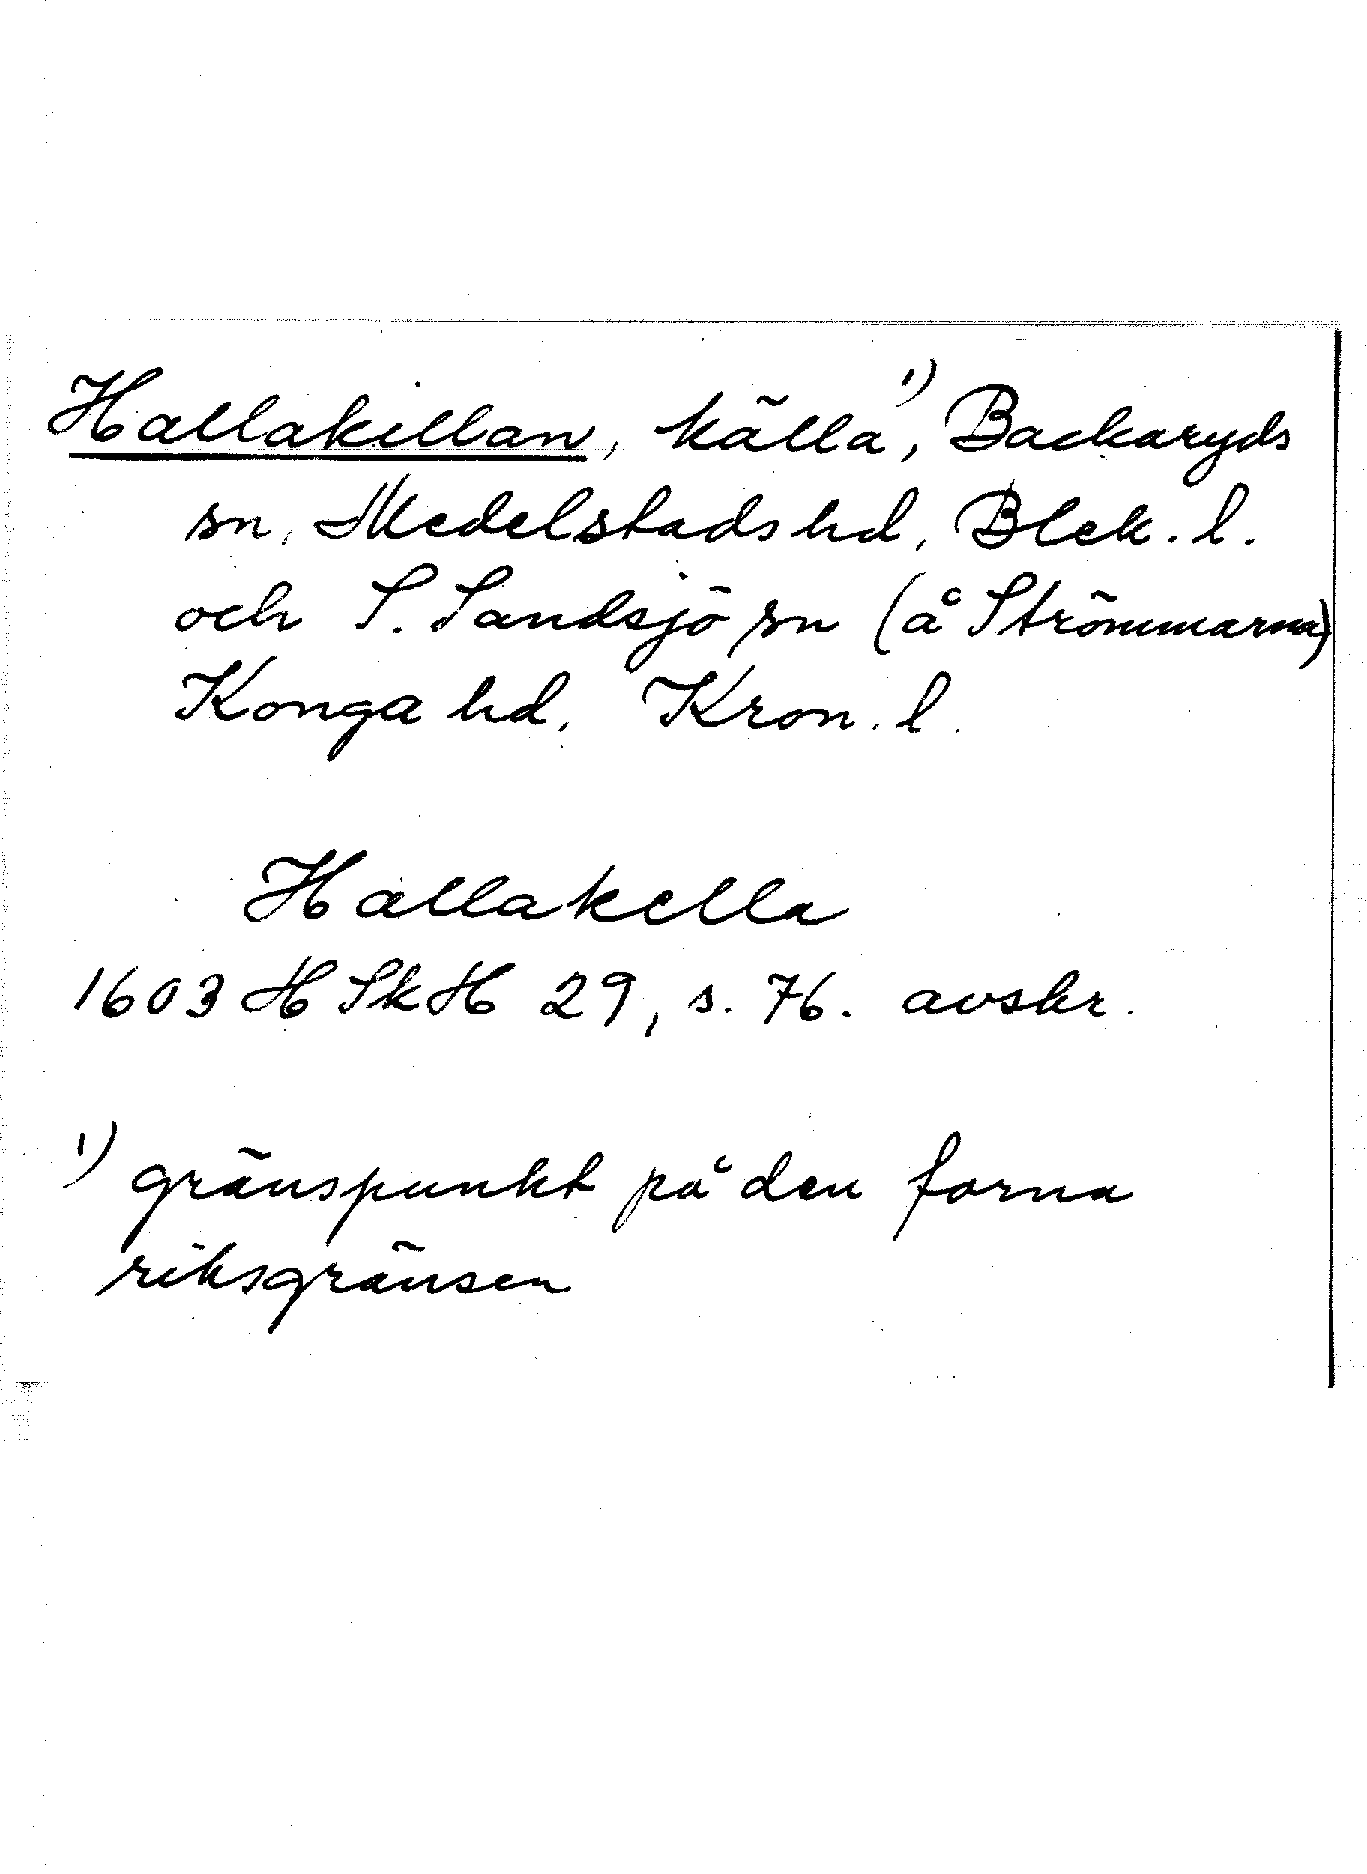 Hallakillan, källa¹⁾, Backaryds
sn, Medelstads hd, Blek. l.
och S. Sandsjö sn (å Strömmarna)
Konga hd, Kron. l.
Hallakella
1603 H Sk H 29, s. 76. avskr.
¹⁾ gränspunkt på den forna
riksgränsen